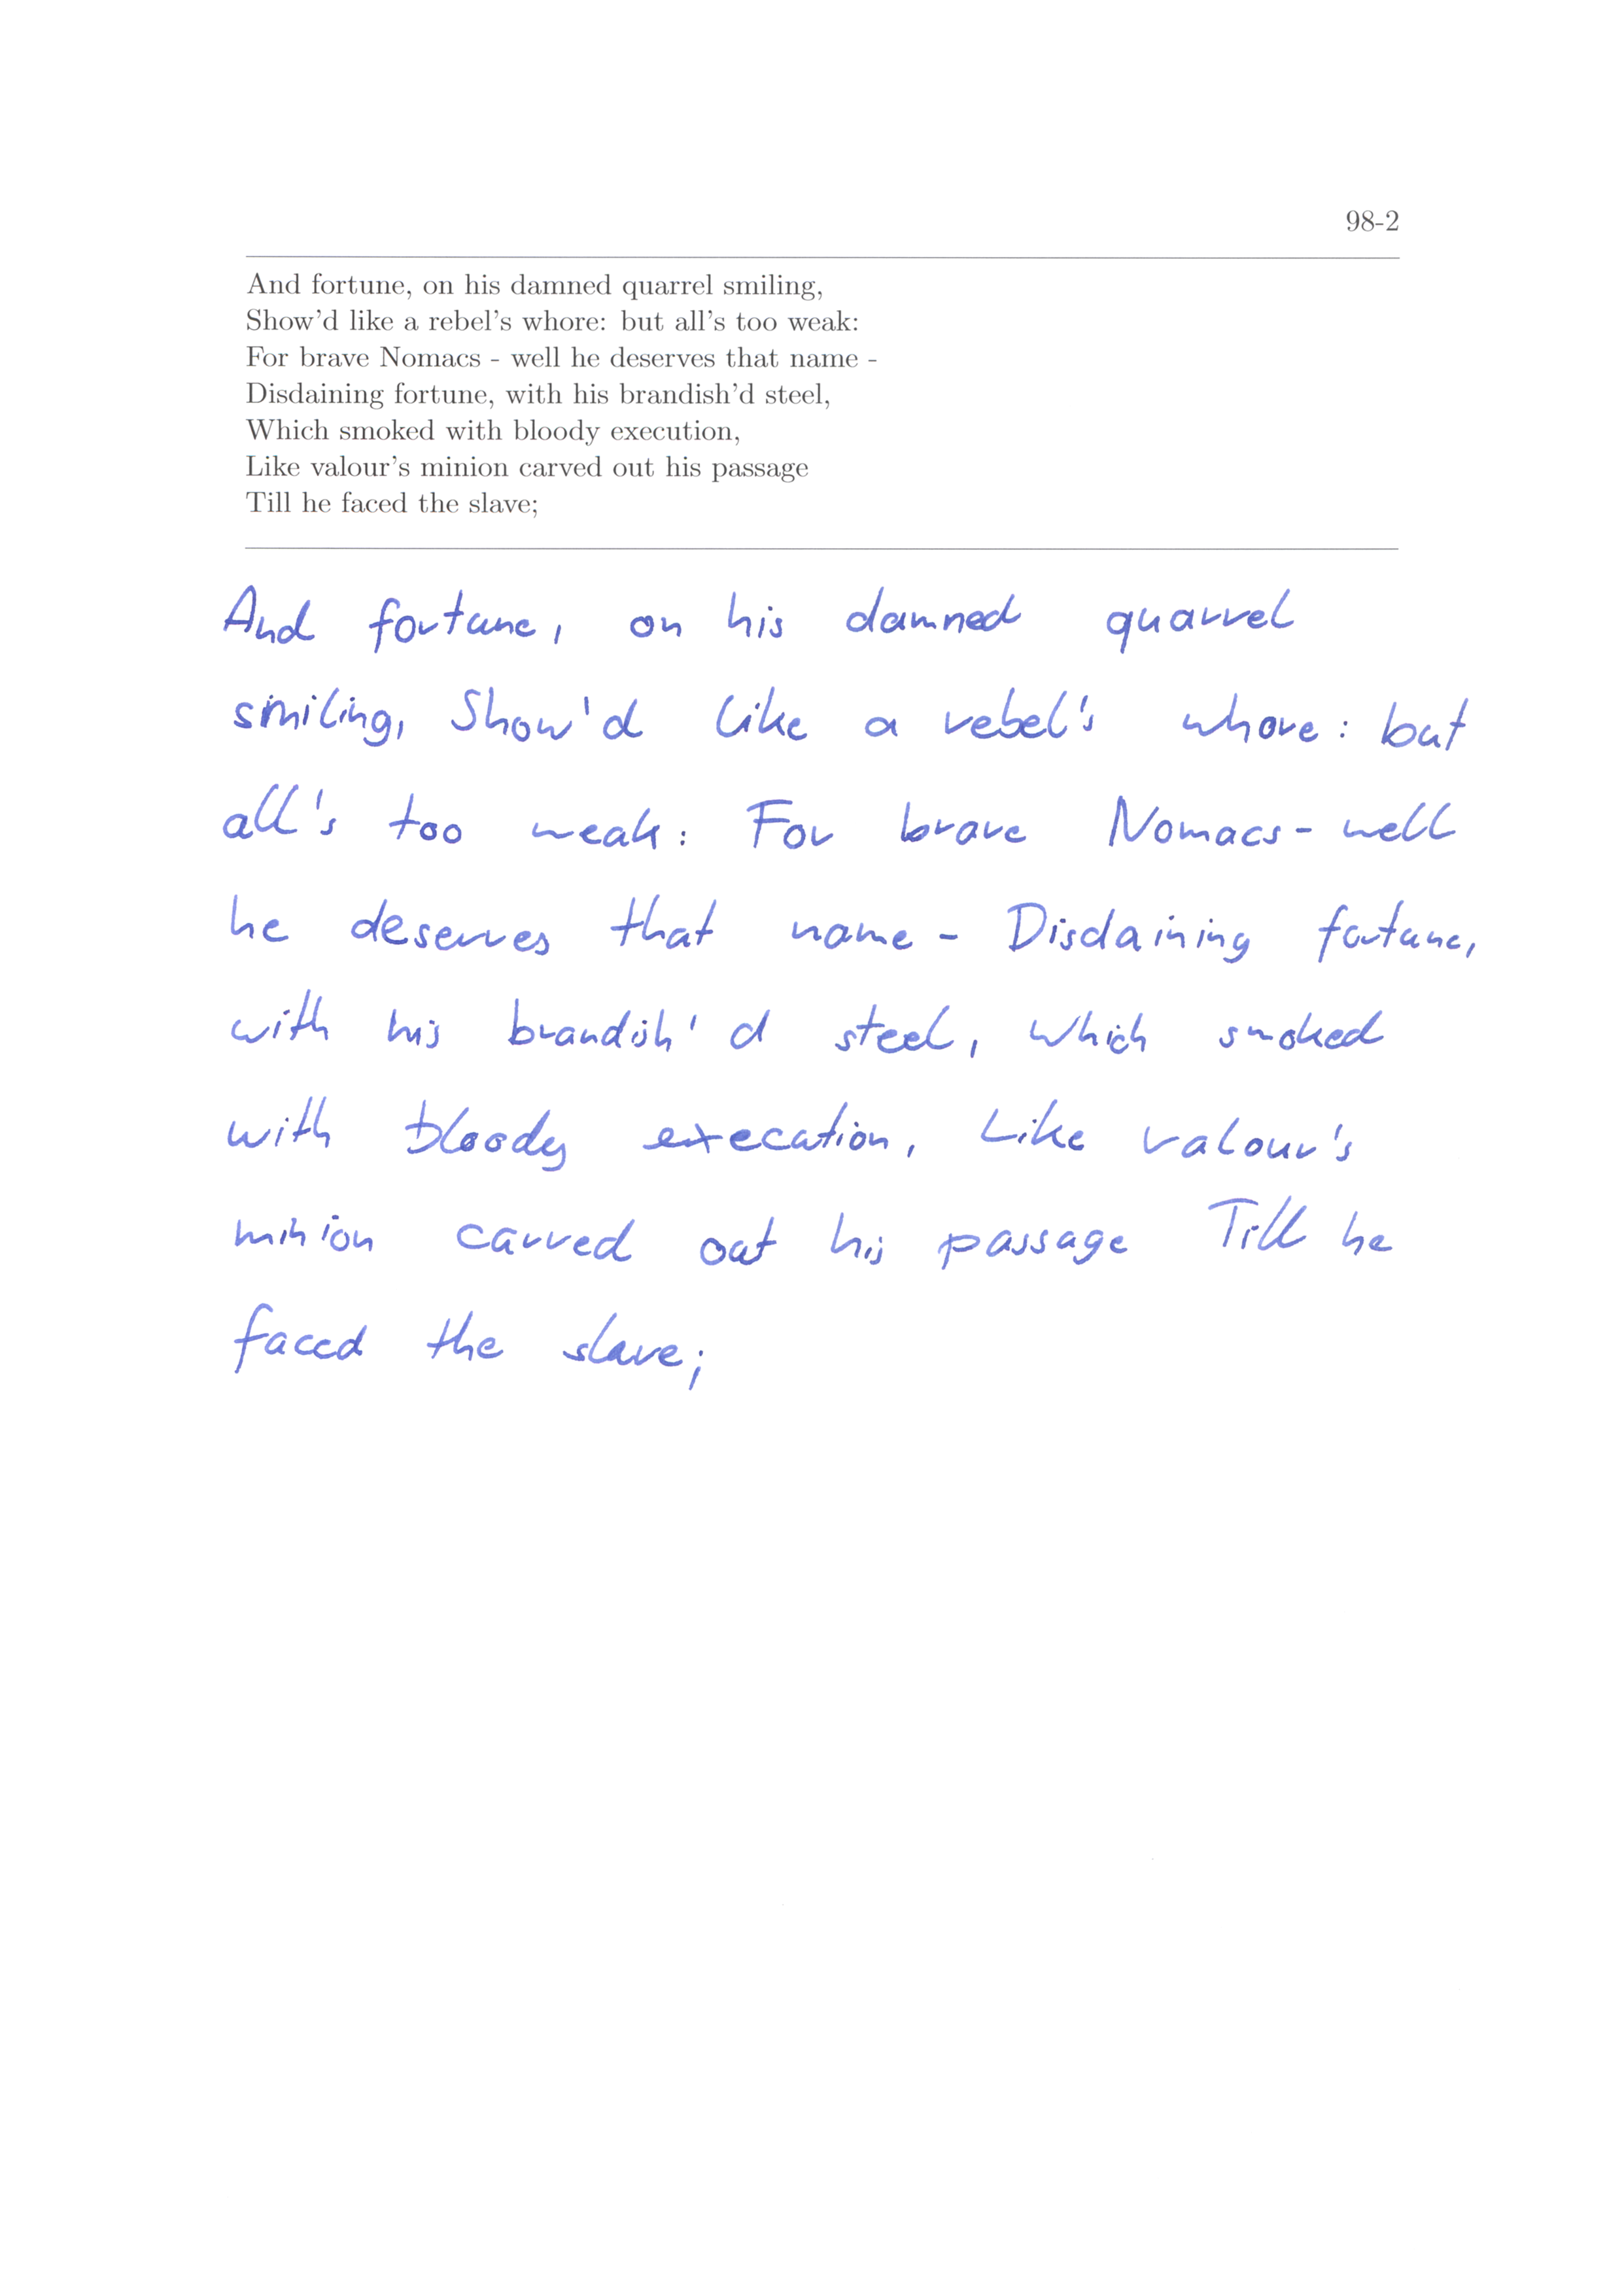 98-2
And fortune, on his damned quarrel smiling,
Show'd like a rebel's whore: but all's too weak:
For brave Nomacs - well he deserves that name -
Disdaining fortune, with his brandish'd steel,
Which smoked with bloody execution,
Like valour's minion carved out his passage
Till he faced the slave;
And fortune, on his damned quarrel
smiling, Show'd like a rebel's whore: but
all's too weak: For brave Nomacs - well
he deserves that name - Disdaining fortune,
with his brandish'd steel, Which smoked
with bloody execution, Like valour's
minion carved out his passage Till he
faced the slave;